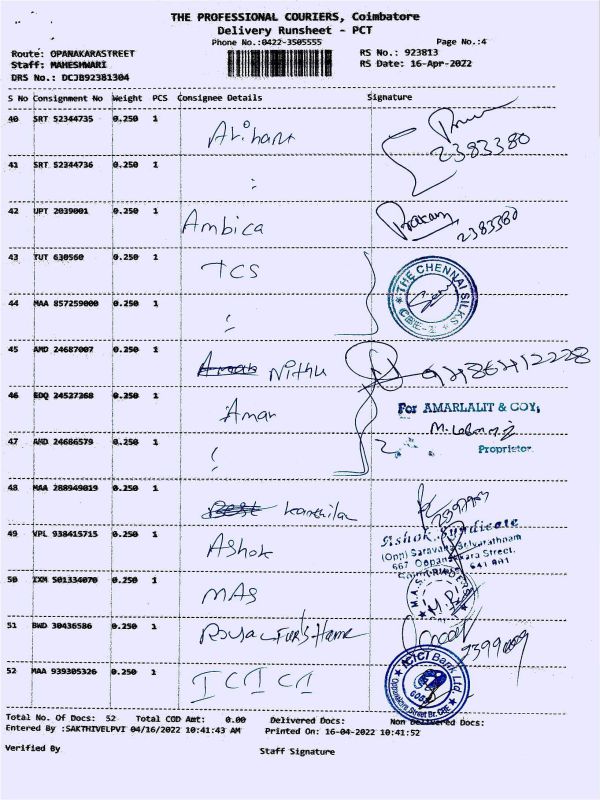 THE PROFESSIONAL COURIERS, Coimbatore
Delivery Runsheet - PCT
Phone No.:0422-3505555
Page No.:4
Route: OPANAKARASTREET
RS No.: 923813
Staff: MAHESHWARI
RS Date: 16-Apr-2022
DRS No.: DCJB92381304
S No Consignment No Weight PCS Consignee Details Signature
40 SRT 52344735 0.250 1 Arihant
2383380
41 SRT 52344736 0.250 1
42 UPT 2039001 0.250 1 Ambica 2383380
43 TUT 630560 0.250 1 TCS
THE CHENNAI SILKS
CBE-1
44 MAA 857259000 0.250 1
45 AMD 24687007 0.250 1 Nithu
46 EDQ 24527268 0.250 1 Aman
For AMARLALIT & COY,
47 AMD 24686579 0.250 1
Proprietor
48 MAA 288949819 0.250 1
49 VPL 938415715 0.250 1 Ashok
Ashok Syndicate
667 Oppanakara Street,
641 001
50 IXM 501334070 0.250 1 MAS
51 BWD 30436586 0.250 1 Royal
52 MAA 939305326 0.250 1 ICICI
ICICI Bank Ltd.
Oppanakara Street Br. CBE
Total No. Of Docs: 52 Total COD Amt: 0.00 Delivered Docs: Non Delivered Docs:
Entered By :SAKTHIVELPVI 04/16/2022 10:41:43 AM Printed On: 16-04-2022 10:41:52
Verified By Staff Signature